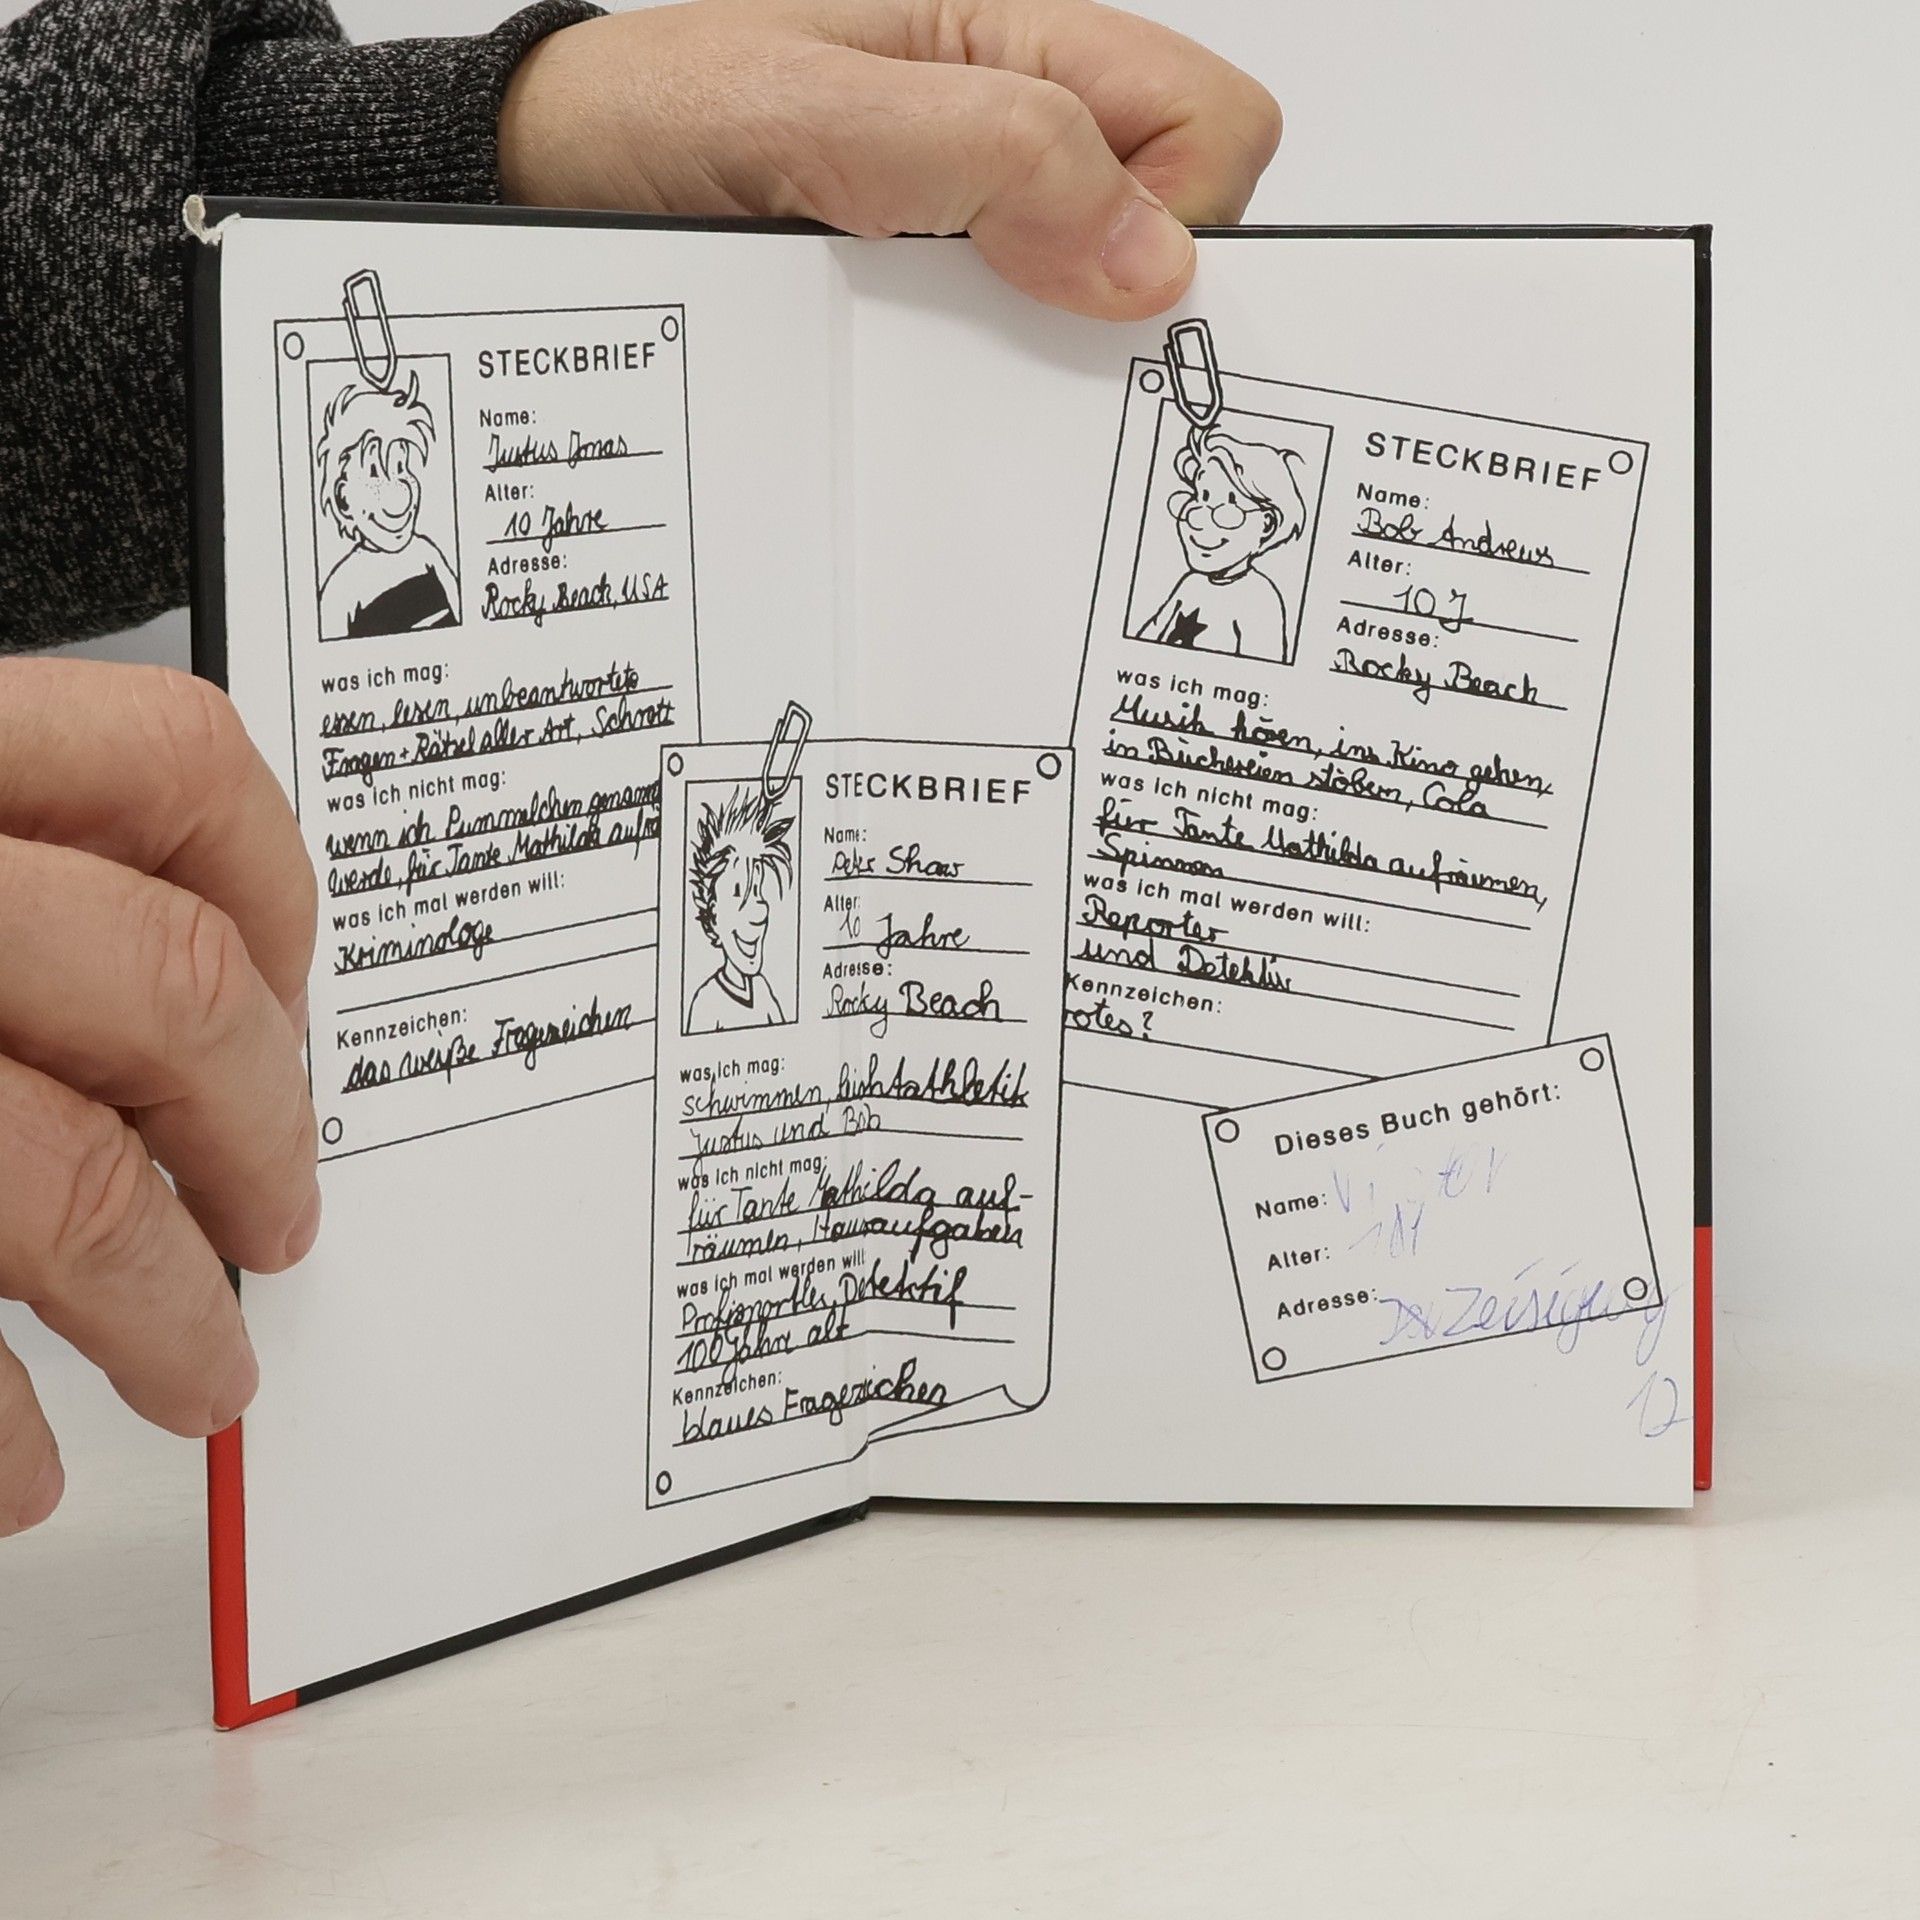 STECKBRIEF
Name:
Justus Jonas
Alter:
10 Jahre
Adresse:
Rocky Beach, USA
was ich mag:
essen, lesen, unbeantwortete
Fragen + Rätsel aller Art, Schrott
was ich nicht mag:
wenn ich Pummelchen genannt
werde, für Tante Mathilda aufrä
was ich mal werden will:
Kriminologe
Kennzeichen:
das weiße Fragezeichen
STECKBRIEF
Name:
Peter Shaw
Alter:
10 Jahre
Adresse:
Rocky Beach
was ich mag:
schwimmen, leichtathletik
Justus und Bob
was ich nicht mag:
für Tante Mathilda auf-
räumen, Hausaufgaben
was ich mal werden will:
Profisportler, Detektif
100 Jahre alt
Kennzeichen:
blaues Fragezeichen
STECKBRIEF
Name:
Bob Andrews
Alter:
10 J
Adresse:
Rocky Beach
was ich mag:
Musik hören, ins Kino gehen,
in Büchereien stöbern, Cola
was ich nicht mag:
für Tante Mathilda aufräumen,
Spinnen
was ich mal werden will:
Reporter
und Detektiv
Kennzeichen:
rotes ?
Dieses Buch gehört:
Name:
Alter:
Adresse:
12